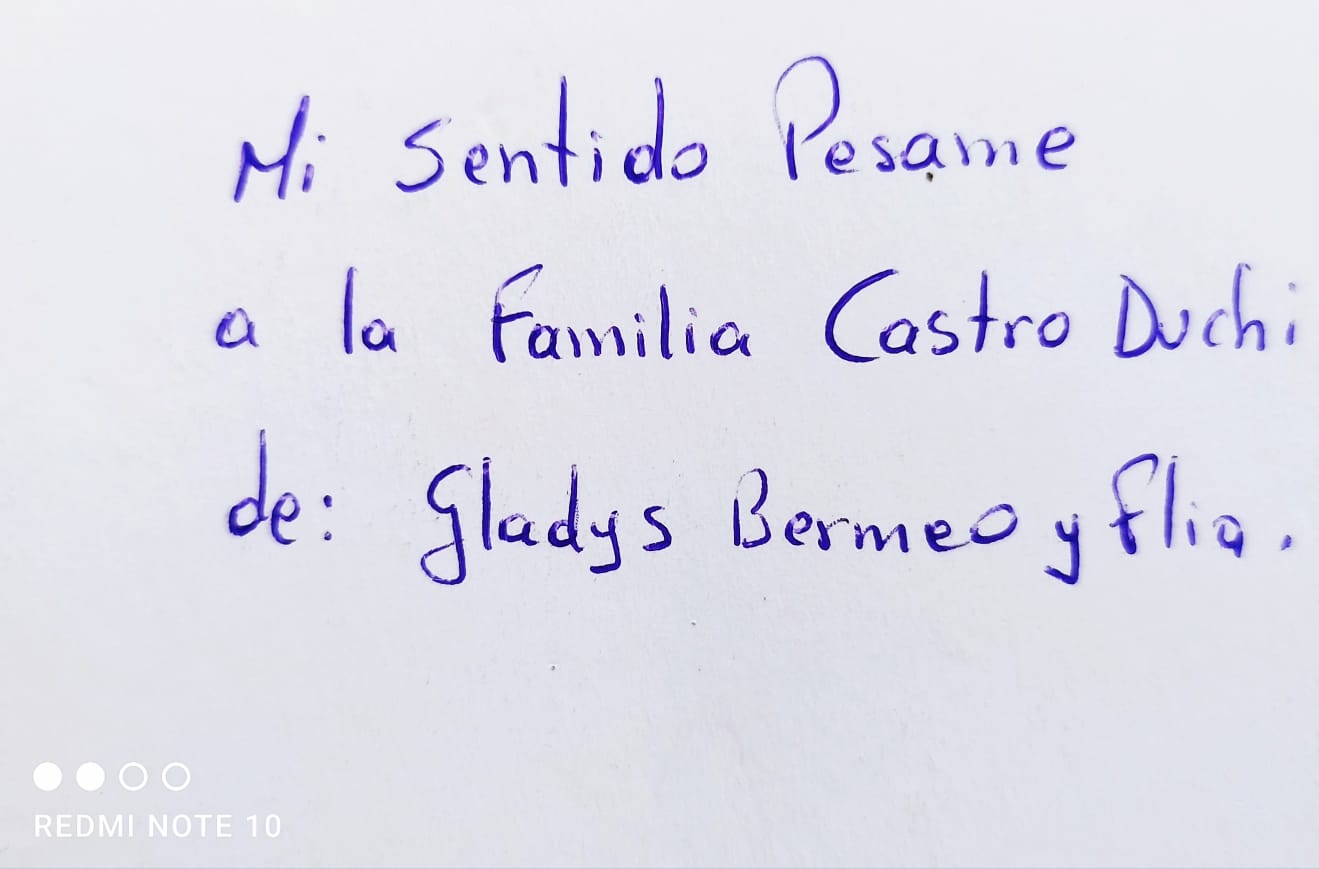 Mi Sentido Pesame
a la Familia Castro Duchi
de: Gladys Bermeo y flia.
REDMI NOTE 10